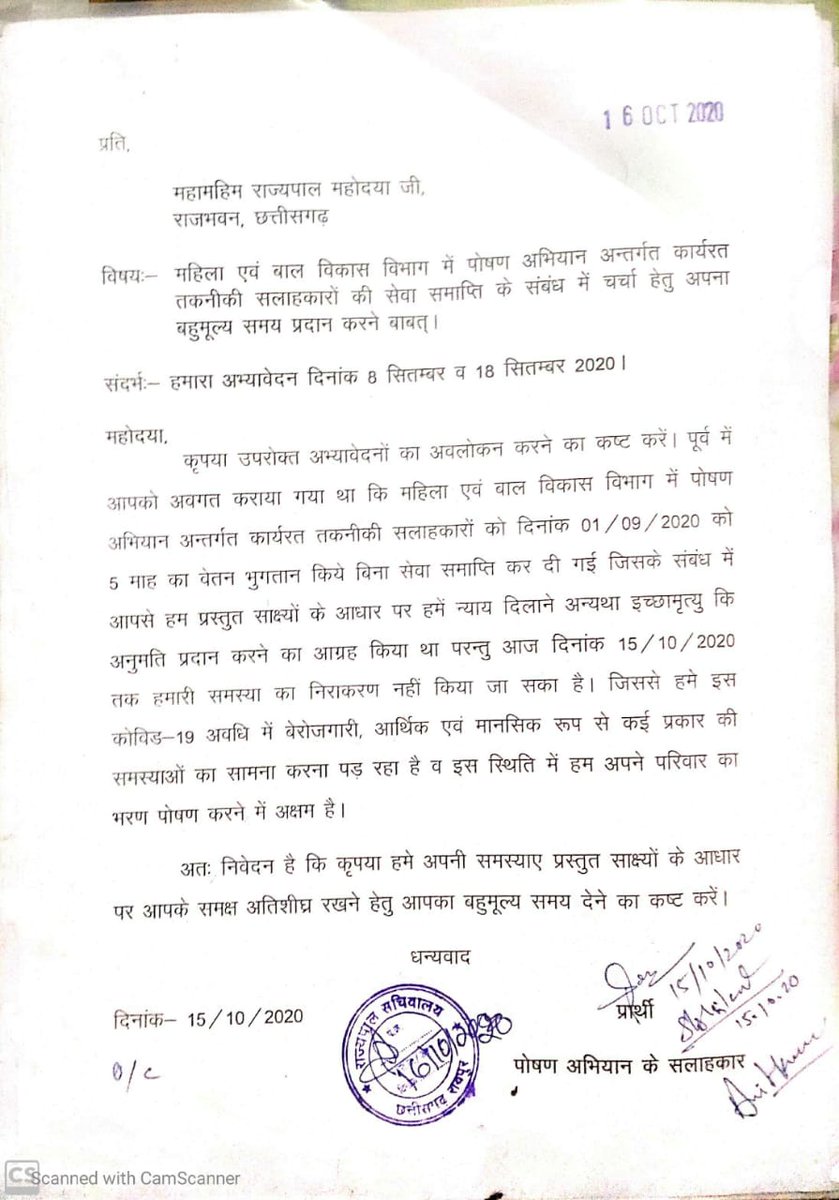 16 OCT 2020
प्रति,
महामहिम राज्यपाल महोदया जी,
राजभवन, छत्तीसगढ़
विषयः– महिला एवं बाल विकास विभाग में पोषण अभियान अन्तर्गत कार्यरत
तकनीकी सलाहकारों की सेवा समाप्ति के संबंध में चर्चा हेतु अपना
बहुमूल्य समय प्रदान करने बाबत्।
संदर्भः– हमारा अभ्यावेदन दिनांक 8 सितम्बर व 18 सितम्बर 2020।
महोदया,
कृपया उपरोक्त अभ्यावेदनों का अवलोकन करने का कष्ट करें। पूर्व में
आपको अवगत कराया गया था कि महिला एवं बाल विकास विभाग में पोषण
अभियान अन्तर्गत कार्यरत तकनीकी सलाहकारों को दिनांक 01/09/2020 को
5 माह का वेतन भुगतान किये बिना सेवा समाप्ति कर दी गई जिसके संबंध में
आपसे हम प्रस्तुत साक्ष्यों के आधार पर हमें न्याय दिलाने अन्यथा इच्छामृत्यु कि
अनुमति प्रदान करने का आग्रह किया था परन्तु आज दिनांक 15/10/2020
तक हमारी समस्या का निराकरण नहीं किया जा सका है। जिससे हमे इस
कोविड–19 अवधि में बेरोजगारी, आर्थिक एवं मानसिक रूप से कई प्रकार की
समस्याओं का सामना करना पड़ रहा है व इस स्थिति में हम अपने परिवार का
भरण पोषण करने में अक्षम है।
अतः निवेदन है कि कृपया हमे अपनी समस्याए प्रस्तुत साक्ष्यों के आधार
पर आपके समक्ष अतिशीघ्र रखने हेतु आपका बहुमूल्य समय देने का कष्ट करें।
धन्यवाद
15/10/2020
प्रार्थी
15.10.20
दिनांक– 15/10/2020
राज्यपाल सचिवालय
16/10/2020
छत्तीसगढ़ रायपुर
पोषण अभियान के सलाहकार
O/C
CS Scanned with CamScanner